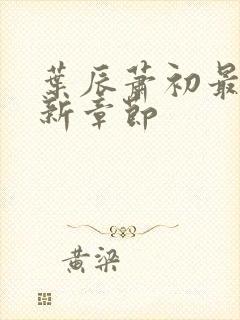 葉辰蕭初最
新章節
黃梁